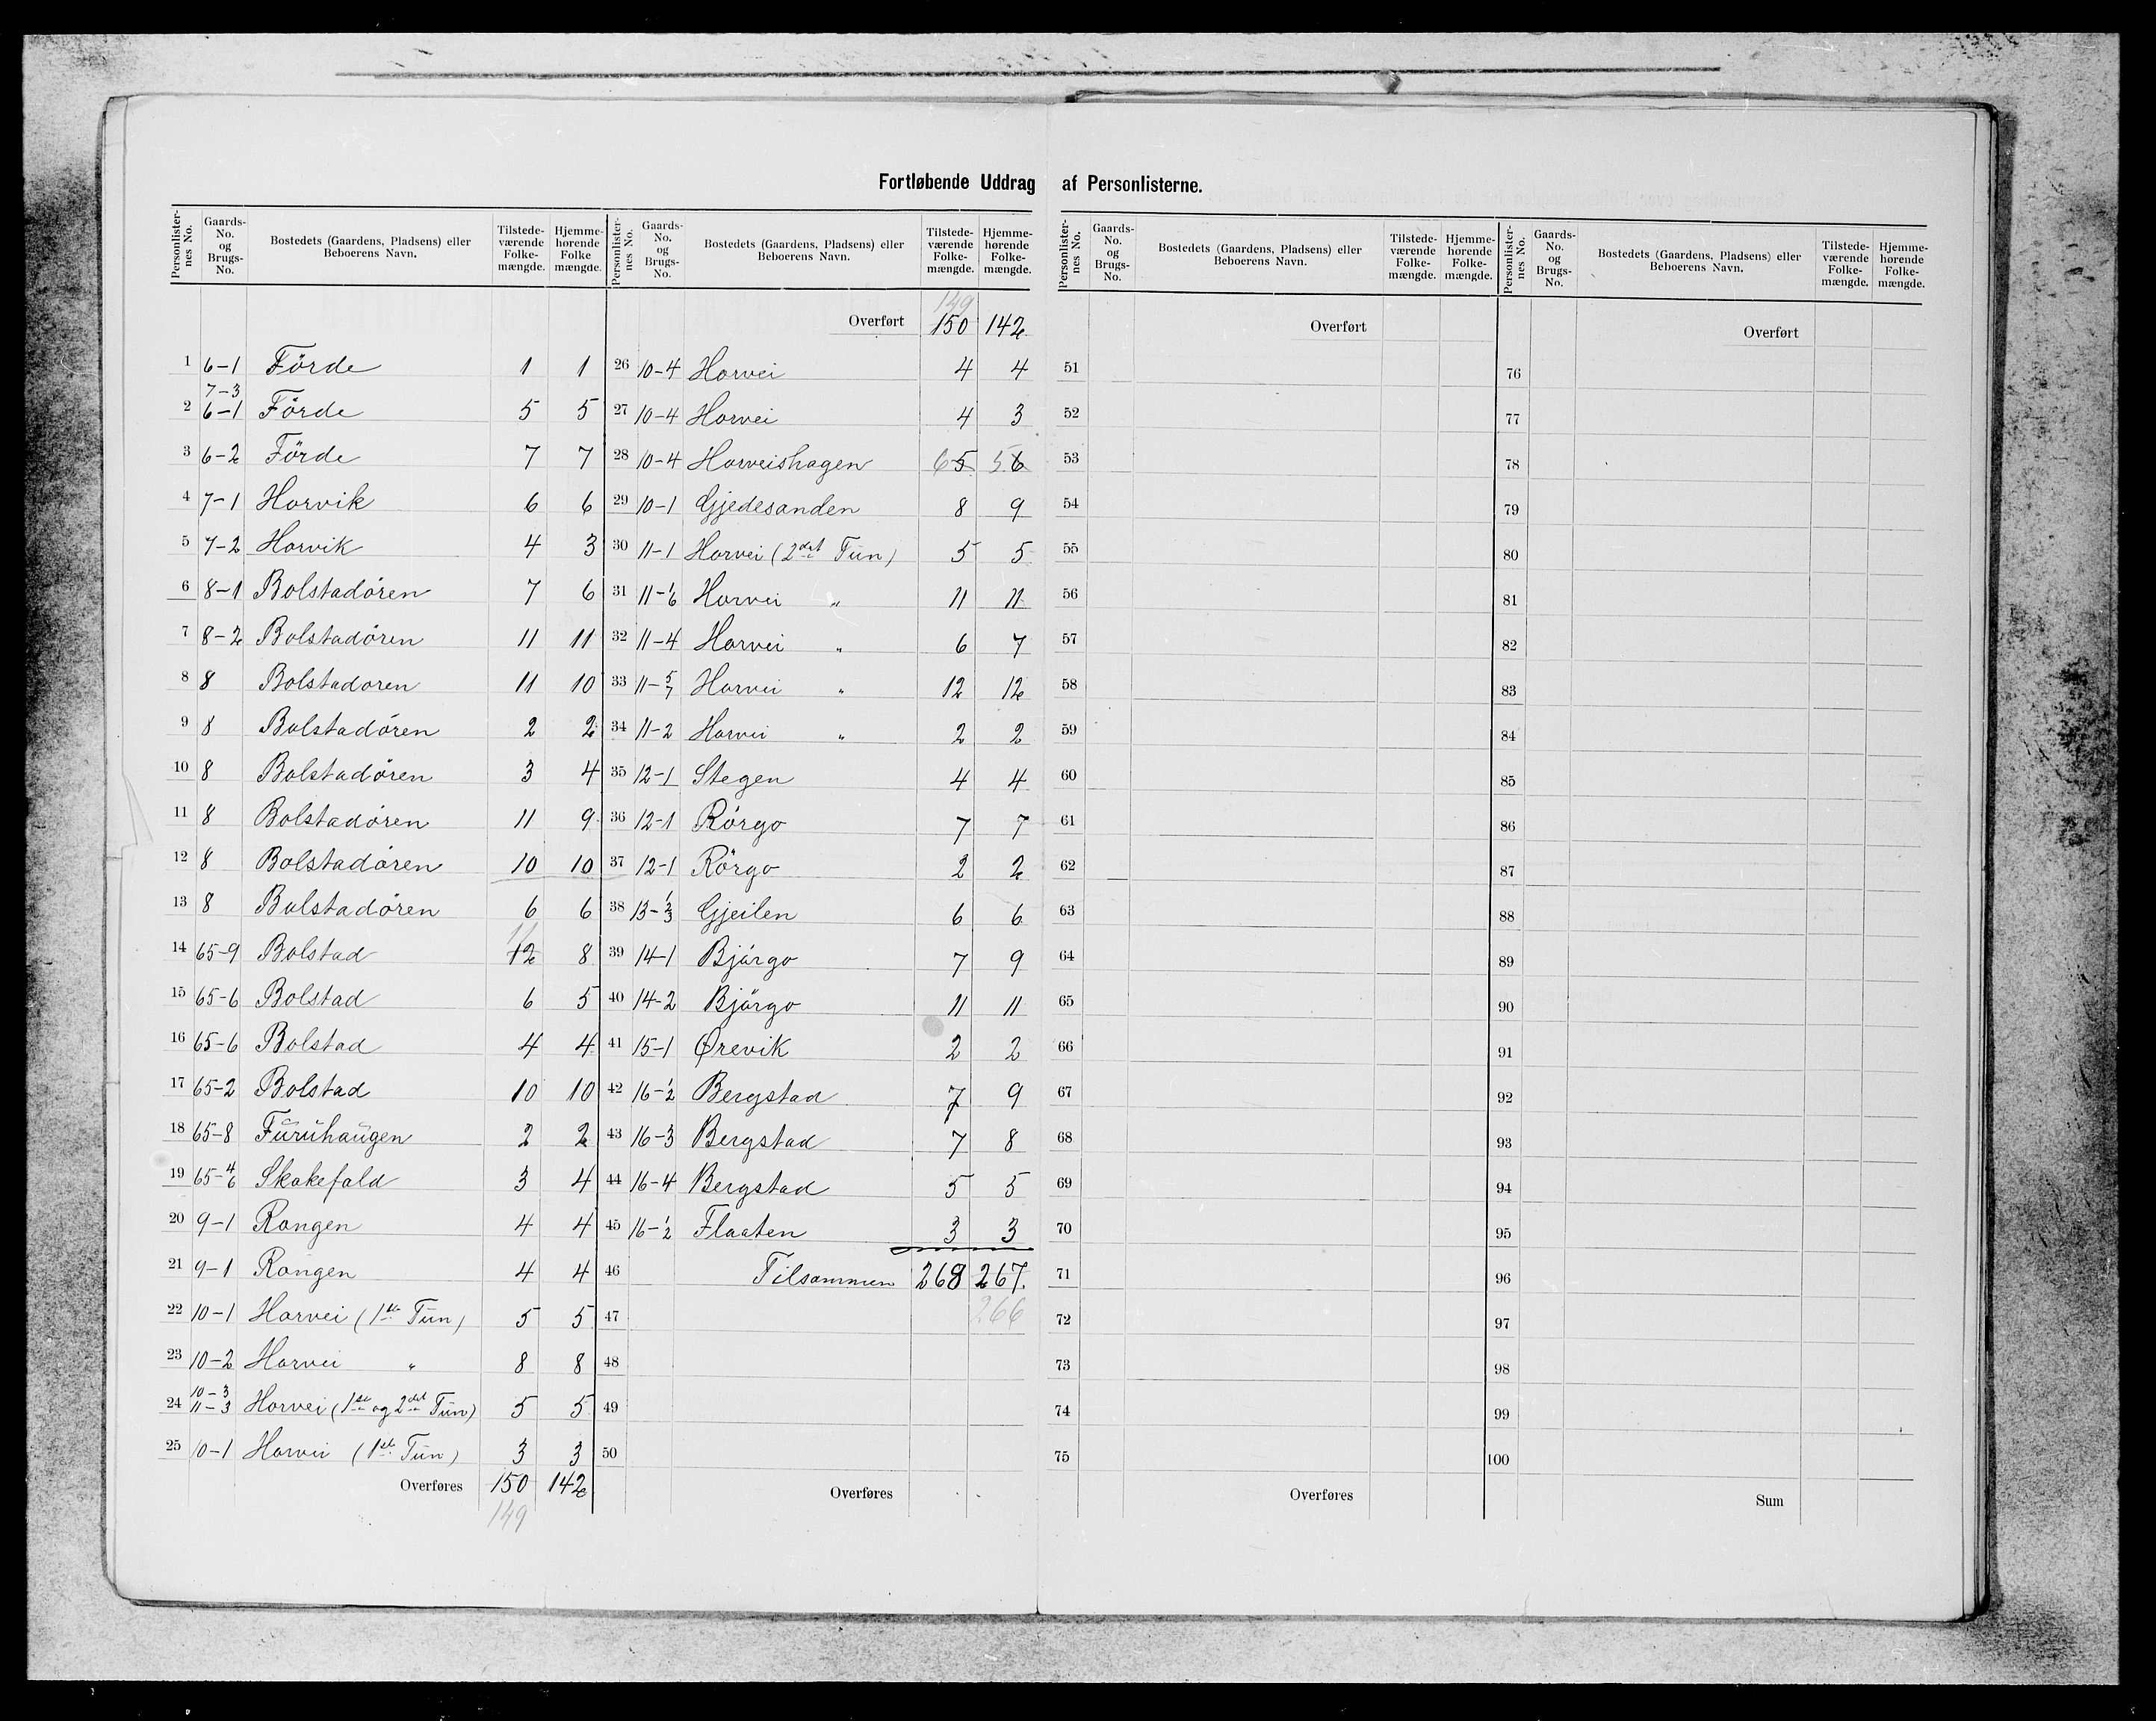 Fortløbende Uddrag af Personlisterne.
Personlister-nes No. | Gaards-No. og Brugs-No. | Bostedets (Gaardens, Pladsens) eller Beboerens Navn. | Tilstede-værende Folke-mængde. | Hjemme-hørende Folke mængde.
1 6-1 Förde 1 1
2 7-3 6-1 Förde 5 5
3 6-2 Förde 7 7
4 7-1 Horvik 6 6
5 7-2 Horvik 4 3
6 8-1 Bolstadören 7 6
7 8-2 Bolstadören 11 11
8 8 Bolstadoren 11 10
9 8 Bolstadören 2 2
10 8 Bolstadören 3 4
11 8 Bolstadören 11 9
12 8 Bolstadören 10 10
13 8 Bolstadören 6 6
11
14 65-9 Bolstad 12 8
15 65-6 Bolstad 6 5
16 65-6 Bolstad 4 4
17 65-2 Bolstad 10 10
18 65-8 Furuhaugen 2 2
19 65-4/6 Skakefald 3 4
20 9-1 Rongen 4 4
21 9-1 Rongen 4 4
22 10-1 Horvei (1ste Tun) 5 5
23 10-2 Horvei " 8 8
24 10-3 11-3 Horvei (1ste og 2det Tun) 5 5
25 10-1 Horvei (1ste Tun) 3 3
Overføres 150 142
149
Personlister-nes No. | Gaards-No. og Brugs-No. | Bostedets (Gaardens, Pladsens) eller Beboerens Navn. | Tilstede-værende Folke-mængde. | Hjemme-hørende Folke-mængde.
149
Overført 150 142
26 10-4 Horvei 4 4
27 10-4 Horvei 4 3
28 10-4 Horveishagen 6 5 5 6
29 10-1 Gjedesanden 8 9
30 11-1 Horvei (2det Tun) 5 5
31 11-1/6 Horvei " 11 11
32 11-4 Horvei " 6 7
33 11-5/7 Horvei " 12 12
34 11-2 Horvei " 2 2
35 12-1 Stegen 4 4
36 12-1 Rörgo 7 7
37 12-1 Rörgo 2 2
38 13-1/2/3 Gjeilen 6 6
39 14-1 Bjärgo 7 9
40 14-2 Bjärgo 11 11
41 15-1 Ørevik 2 2
42 16-1/2 Bergstad 7 9
43 16-3 Bergstad 7 8
44 16-4 Bergstad 5 5
45 16-1/2 Flaaten 3 3
46 Tilsammen 268 267.
266
47
48
49
50
Overføres
Personlister-nes No. | Gaards-No. og Brugs-No. | Bostedets (Gaardens, Pladsens) eller Beboerens Navn. | Tilstede-værende Folke-mængde. | Hjemme-hørende Folke-mængde.
Overført
51
52
53
54
55
56
57
58
59
60
61
62
63
64
65
66
67
68
69
70
71
72
73
74
75
Overføres
Personlister-nes No. | Gaards-No. og Brugs-No. | Bostedets (Gaardens, Pladsens) eller Beboerens Navn. | Tilstede-værende Folke-mængde. | Hjemme-hørende Folke-mængde.
Overført
76
77
78
79
80
81
82
83
84
85
86
87
88
89
90
91
92
93
94
95
96
97
98
99
100
Sum